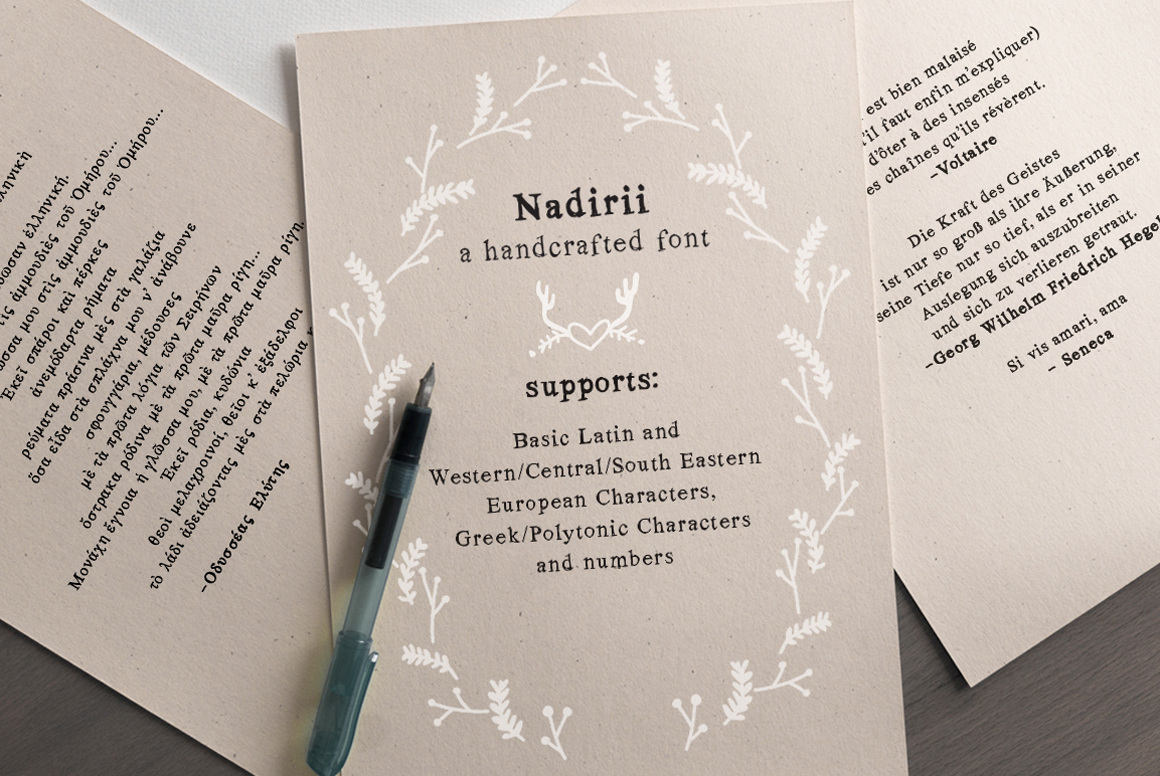 Nadirii
a handcrafted font
supports:
Basic Latin and
Western/Central/South Eastern
European Characters,
Greek/Polytonic Characters
and numbers
ἑλληνική.
μου στὶς ἀμμουδιὲς τοῦ Ὁμήρου...
στὶς ἀμμουδιὲς τοῦ Ὁμήρου...
Ἐκεῖ σπάροι καὶ πέρκες
ἀνεμόδαρτα ρήματα
ρεύματα πράσινα μὲς στὰ γαλάζια
ὅσα εἶδα στὰ σπλάχνα μου ν' ἀνάβουνε
σφουγγάρια, μέδουσες
μὲ τὰ πρῶτα λόγια τῶν Σειρήνων
ὄστρακα ρόδινα μὲ τὰ πρῶτα μαῦρα ρίγη...
Μονάχη ἔγνοια ἡ γλῶσσα μου, μὲ τὰ πρῶτα μαῦρα ρίγη.
Ἐκεῖ ρόδια, κυδώνια
θεοὶ μελαχροινοί, θεῖοι κ' ἐξάδελφοι
τὸ λάδι ἀδειάζοντας μὲς στὰ πελώρια
–Οδυσσέας Ελύτης
est bien malaisé
il faut enfin m'expliquer)
d'ôter à des insensés
es chaînes qu'ils révèrent.
–Voltaire
Die Kraft des Geistes
ist nur so groß als ihre Äußerung,
seine Tiefe nur so tief, als er in seiner
Auslegung sich auszubreiten
und sich zu verlieren getraut.
–Georg Wilhelm Friedrich Hegel
Si vis amari, ama
– Seneca